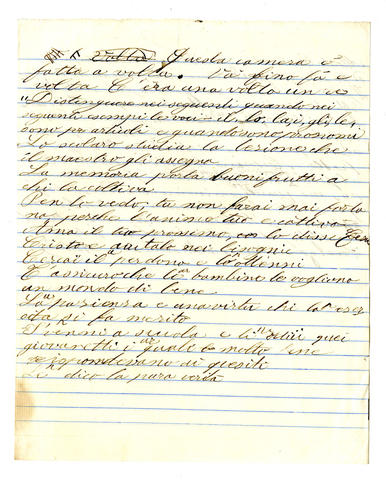 Volta Questa camera é
fatta a volta. Vai fino fá e
volta C'éra una volta un re
"Distinguere nei seguenti quando nei
seguenti esempi le voci il, lo, la, i, gli, le,
sono per articoli e quando sono pronomi
Lo scolaro studia la lezione che
il maestro gli assegna
La memoria porta buoni frutti a
chi la coltiva
Pen lo vedo, tu non farai mai forta
na perche l'animo tuo e cattivo
Ama il tuo prossimo, cosi lo disse Gesu
Cristo e aiutalo nei bisogni
Cercai il perdono e lo ottenni
T'assicuro che le bambine le vogliono
un mondo di bene
La pazienza e una virtu chi la eser
cita si fa merito
Venni a scuola e li udii quei
giovanetti i quali e molto bene
rispondevano ai quesiti
Le dico la pura verita